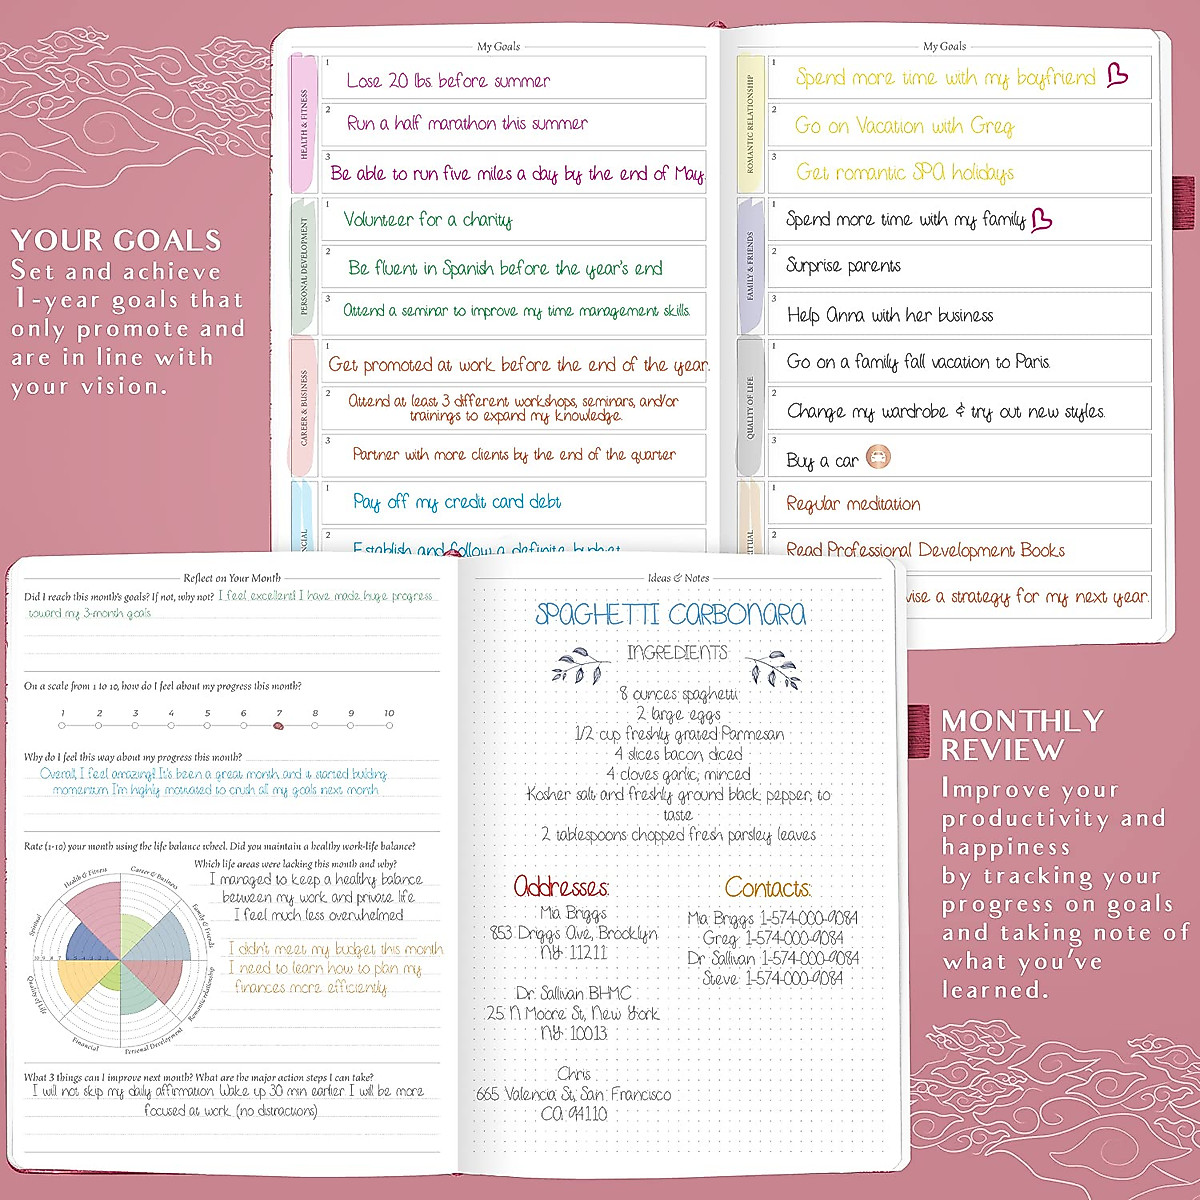 YOUR GOALS
Set and achieve
1-year goals that
only promote and
are in line with
your vision.
My Goals
HEALTH & FITNESS
1
Lose 20 lbs. before summer
2
Run a half marathon this summer
3
Be able to run five miles a day by the end of May.
PERSONAL DEVELOPMENT
1
Volunteer for a charity
2
Be fluent in Spanish before the year's end
3
Attend a seminar to improve my time management skills.
CAREER & BUSINESS
1
Get promoted at work before the end of the year.
2
Attend at least 3 different workshops, seminars, and/or
trainings to expand my knowledge.
3
Partner with more clients by the end of the quarter
1
Pay off my credit card debt
2
Establish and follow a definite budget
My Goals
ROMANTIC RELATIONSHIP
1
Spend more time with my boyfriend
2
Go on Vacation with Greg
3
Get romantic SPA holidays
FAMILY & FRIENDS
1
Spend more time with my family
2
Surprise parents
3
Help Anna with her business
QUALITY OF LIFE
1
Go on a family fall vacation to Paris.
2
Change my wardrobe & try out new styles.
3
Buy a car
1
Regular meditation
2
Read Professional Development Books
vise a strategy for my next year.
Reflect on Your Month
Did I reach this month's goals? If not, why not? I feel excellent! I have made huge progress
toward my 3-month goals
On a scale from 1 to 10, how do I feel about my progress this month?
1 2 3 4 5 6 7 8 9 10
Why do I feel this way about my progress this month?
Overall, I feel amazing! It's been a great month, and it started building
momentum. I'm highly motivated to crush all my goals next month.
Rate (1-10) your month using the life balance wheel. Did you maintain a healthy work-life balance?
Which life areas were lacking this month and why?
I managed to keep a healthy balance
between my work and private life
I feel much less overwhelmed
I didn't meet my budget this month
I need to learn how to plan my
finances more efficiently.
Health & Fitness
Career & Business
Family & Friends
Romantic relationship
Personal Development
Financial
Quality of Life
Spiritual
What 3 things can I improve next month? What are the major action steps I can take?
I will not skip my daily affirmation. Wake up 30 min earlier. I will be more
focused at work. (no distractions)
Ideas & Notes
SPAGHETTI CARBONARA
INGREDIENTS
8 ounces spaghetti
2 large eggs
1/2 cup freshly grated Parmesan
4 slices bacon, diced
4 cloves garlic, minced
Kosher salt and freshly ground black pepper, to
taste
2 tablespoons chopped fresh parsley leaves
Addresses:
Ma Briggs
853 Driggs Ave, Brooklyn
NY 11211
Dr. Sallivan BHMC
25 N Moore St, New York
NY 10013
Chris
665 Valencia St, San Francisco
CA 94110
Contacts:
Ma Briggs 1-574-000-9084
Greg 1-574-000-9084
Dr Sallivan 1-574-000-9084
Steve 1-574-000-9084
MONTHLY
REVIEW
Improve your
productivity and
happiness
by tracking your
progress on goals
and taking note of
what you've
learned.